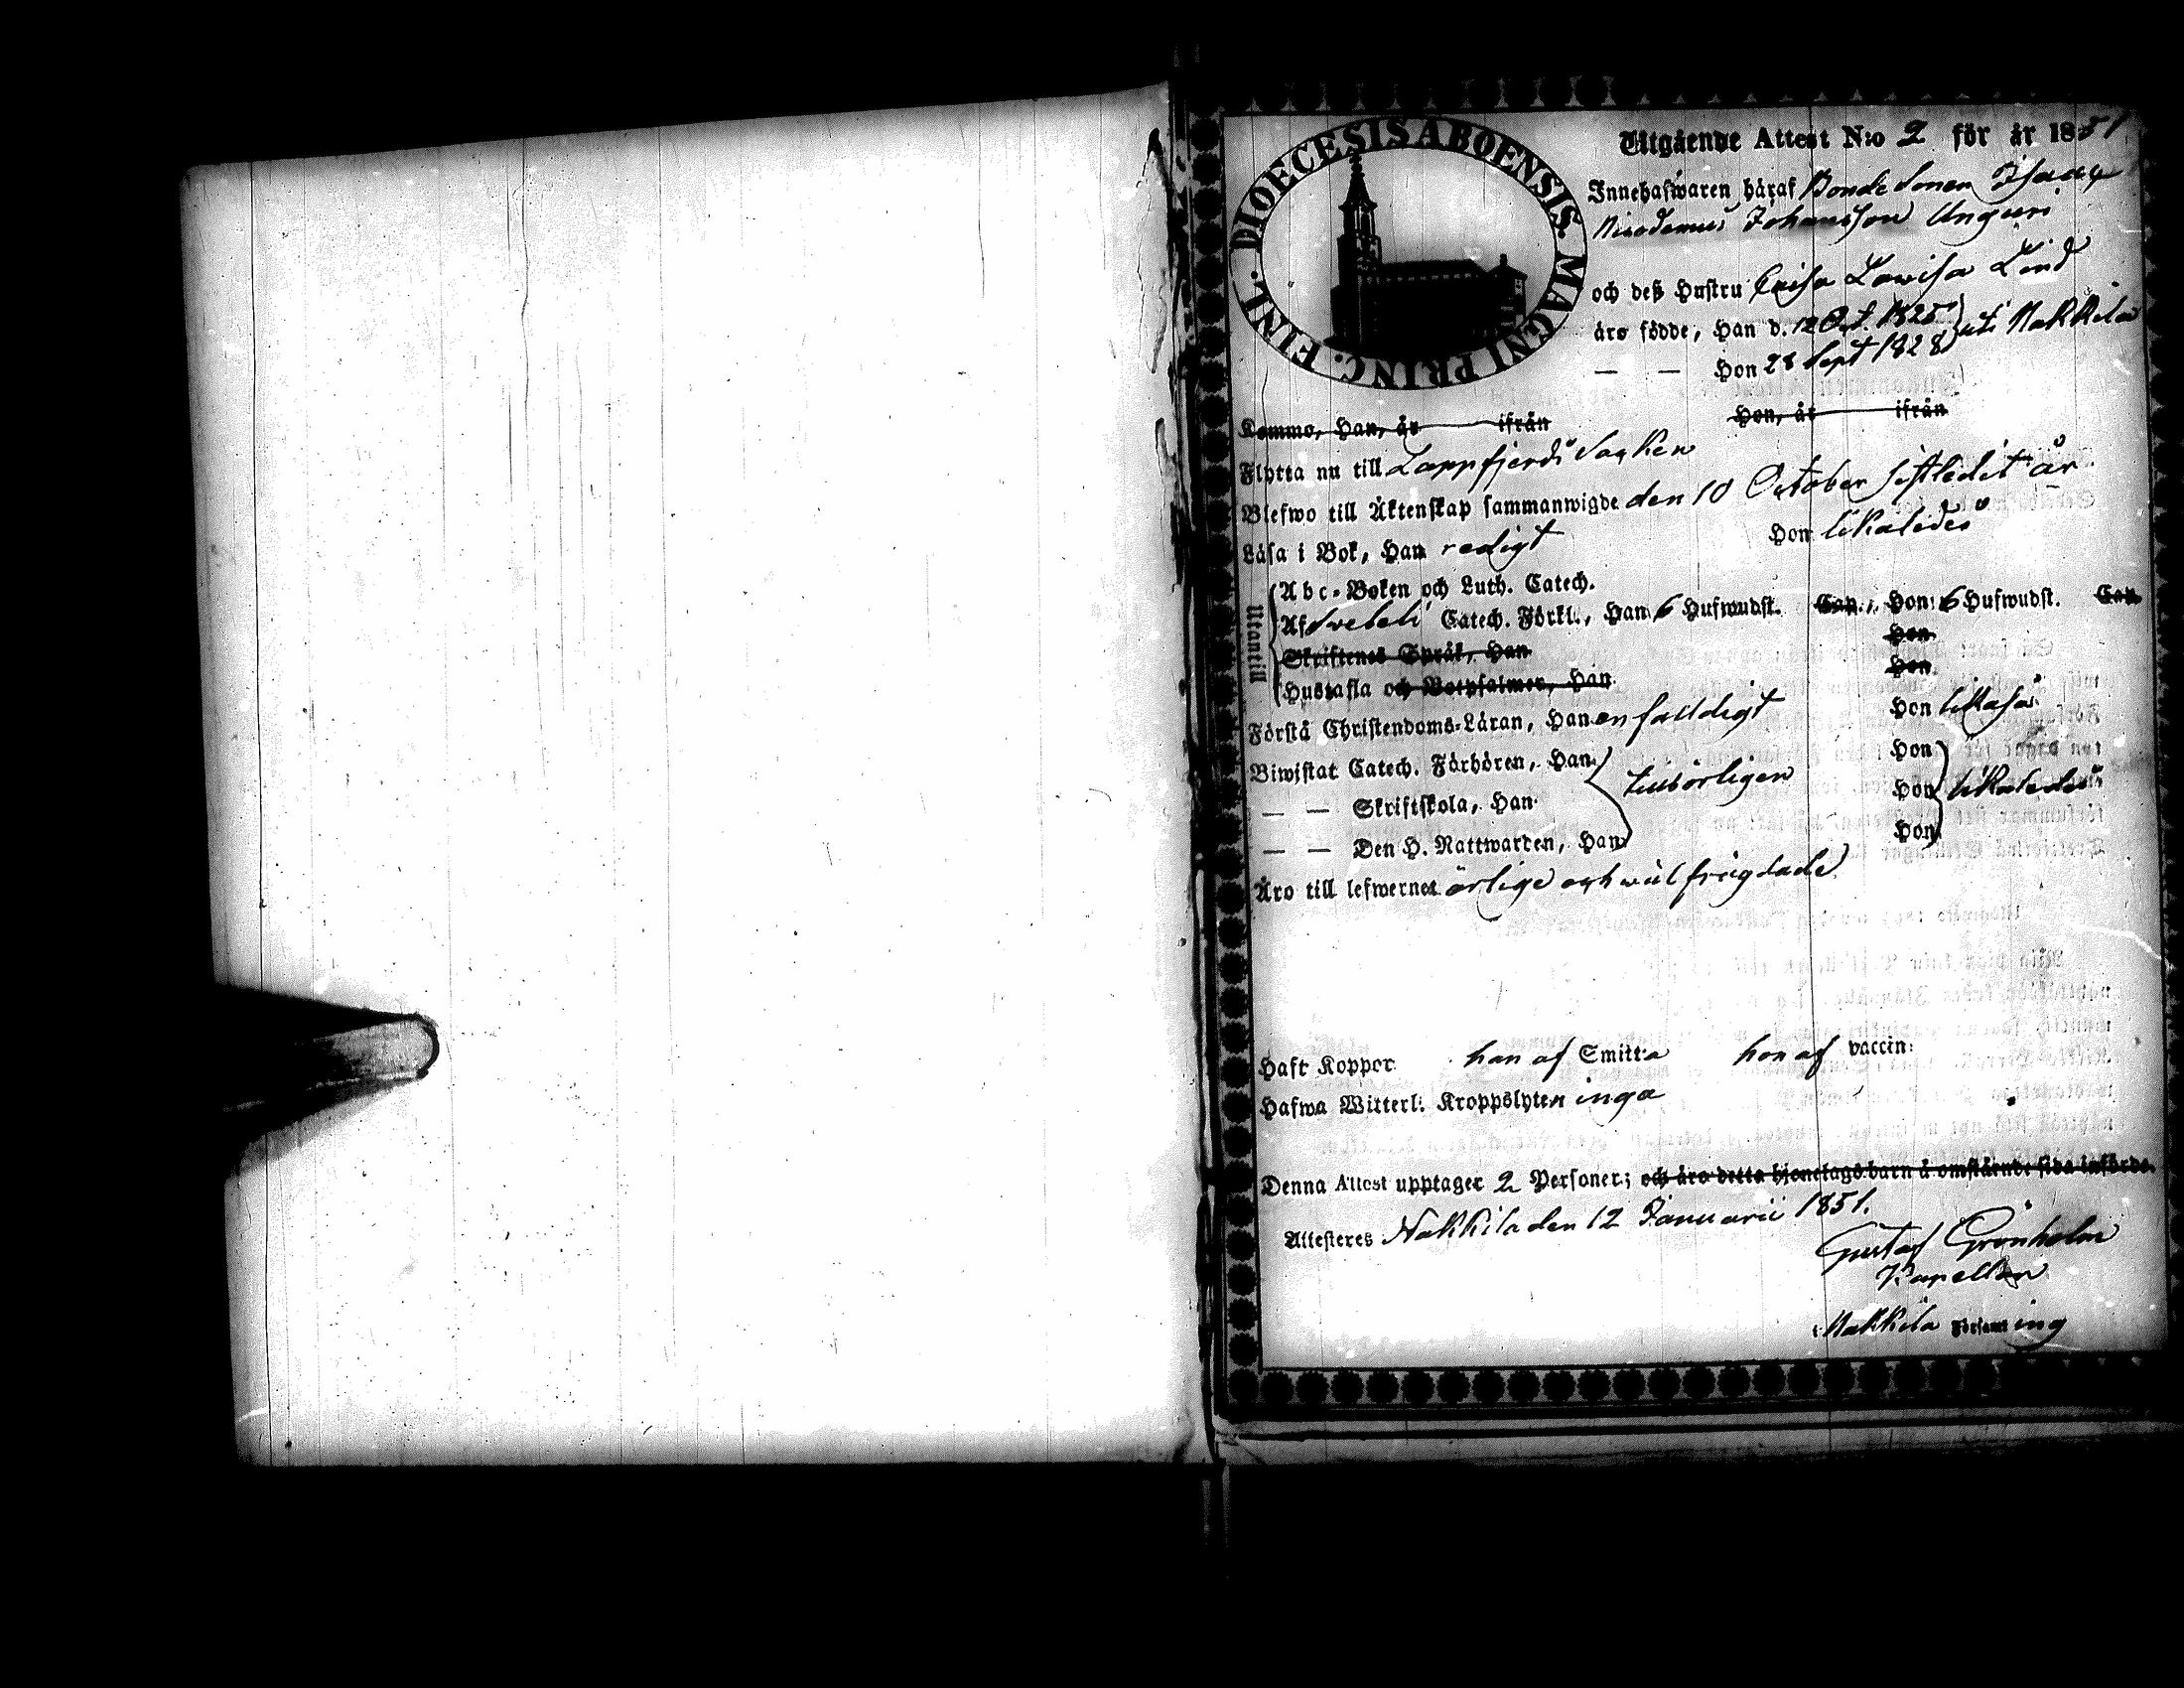 DIOECESIS ABOENSIS. MAGNI PRINC. FINL.
Utgående Attest N:o 2 för år 1851
Innehafwaren häraf Bonde Sonen Isaac
Nicodemus Johansson Unguri
och deß Hustru Caisa Lovisa Lind
äro födde, Han d. 12 Oct. 1825 uti Nakkila
— — Hon 28 Sept 1828
Kommo, Han, år ifrån Hon, år ifrån
Flytta nu till Lappfjerds Socken
Blefwo till Äktenskap sammanwigde den 10 October sistledit år
Läsa i Bok, Han redigt Hon likaledes
Utantill
Abc-Boken och Luth. Catech.
Af Svebeli Catech. Förkl., Han 6 Hufwudst. Cap., Hon 6 Hufwudst. Cap.
Skriftenes Språk, Han Hon
Hustafla och Botpsalmer, Han Hon
Förstå Christendoms-Läran, Han enfalldigt Hon likaså
Biwistat Catech. Förhören, Han Hon
— — Skriftskola, Han tillbörligen Hon likaledes
— — Den H. Nattwarden, Han Hon
Äro till lefwernet ärlige och wälfrägdade
Haft Koppor han af Smitta hon af vaccin:
Hafwa Witterl. Kroppslyten inga
Denna Attest upptager 2 Personer; och äro detta hjonelags barn å omstående sida införde.
Attesteres Nakkila den 12 Januarii 1851.
Gustaf Grönholm
Kapellan
i Nakkila Församling